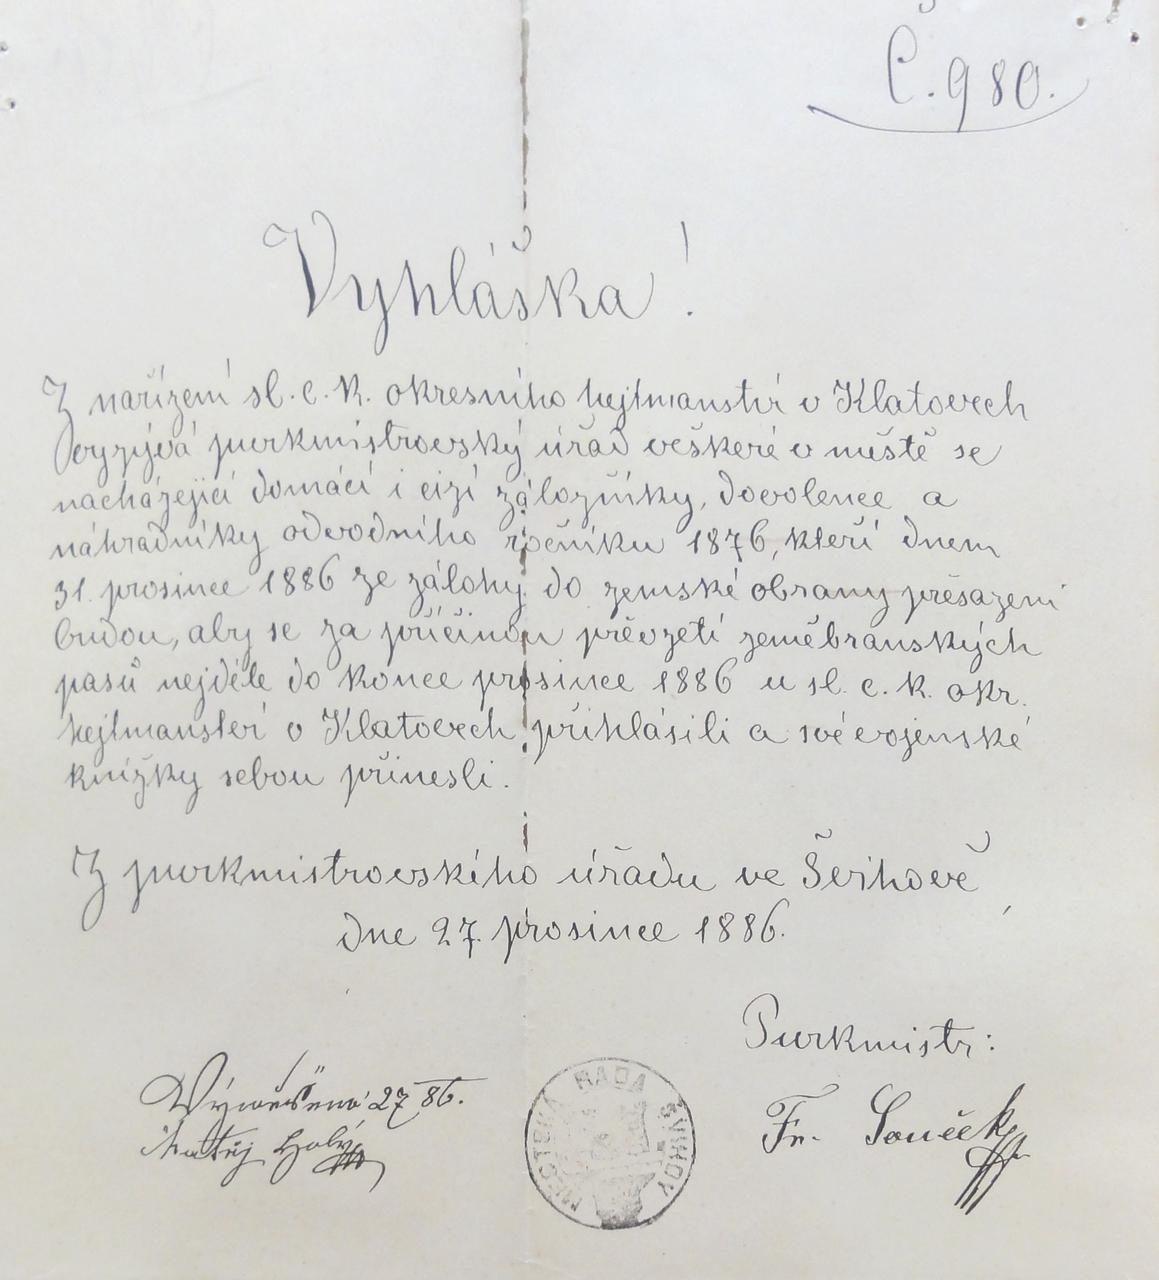 Č. 980.
Vyhláška!
Z nařízení sl. c. k. okresního hejtmanství v Klatovech
vyzývá purkmistrovský úřad veškeré v městě se
nacházející domácí i cizí záložníky, dovolence a
náhradníky odvodního ročníku 1876, kteří dnem
31. prosince 1886 ze zálohy do zemské obrany přesazeni
budou, aby se za příčinou převzetí zeměbranských
pasů nejdéle do konce prosince 1886 u sl. c. k. okr.
hejtmanství v Klatovech přihlásili a své vojenské
knížky sebou přinesli.
Z purkmistrovského úřadu ve Švihově
dne 27. prosince 1886.
Purkmistr:
Vyvěšeno 27 86.
Matěj Holý
MĚSTSKÁ RADA ŠVIHOV
Fr. Souček